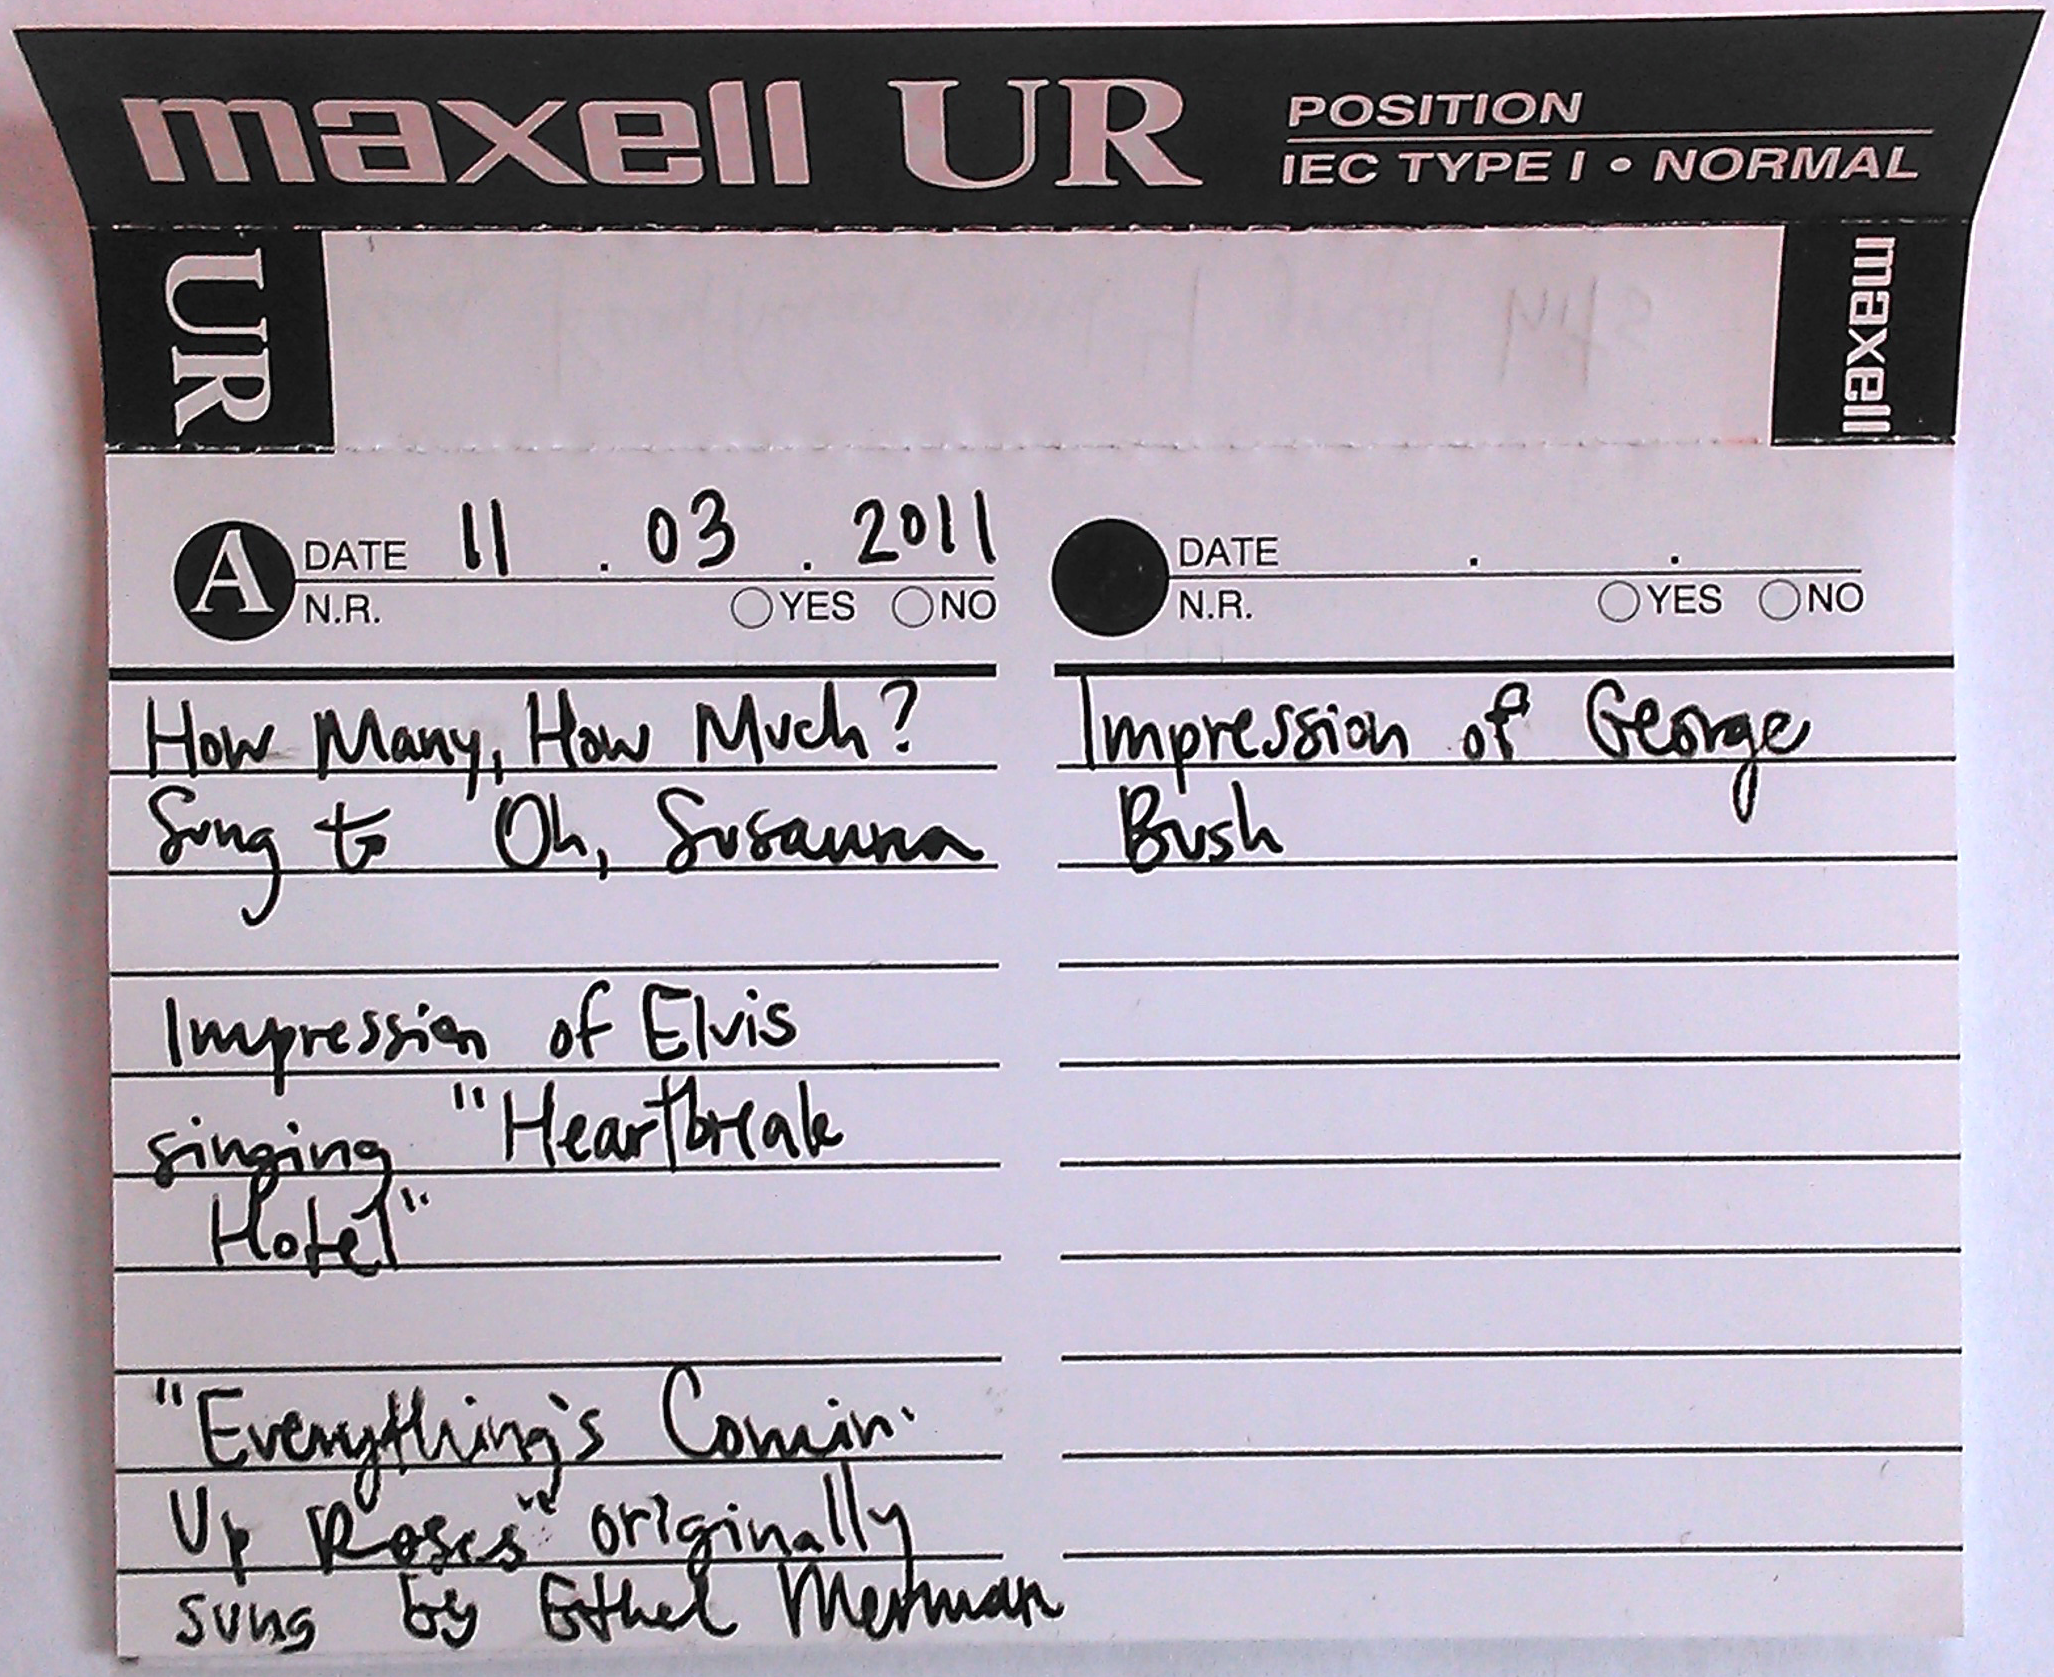 maxell UR POSITION
IEC TYPE I • NORMAL
UR
maxell
A DATE 11 . 03 . 2011
N.R. YES NO
How Many, How Much?
Sung to Oh, Susanna
Impression of Elvis
singing "Heartbreak
Hotel"
"Everything's Comin'
Up Roses" originally
sung by Ethel Merman
DATE . .
N.R. YES NO
Impression of George
Bush